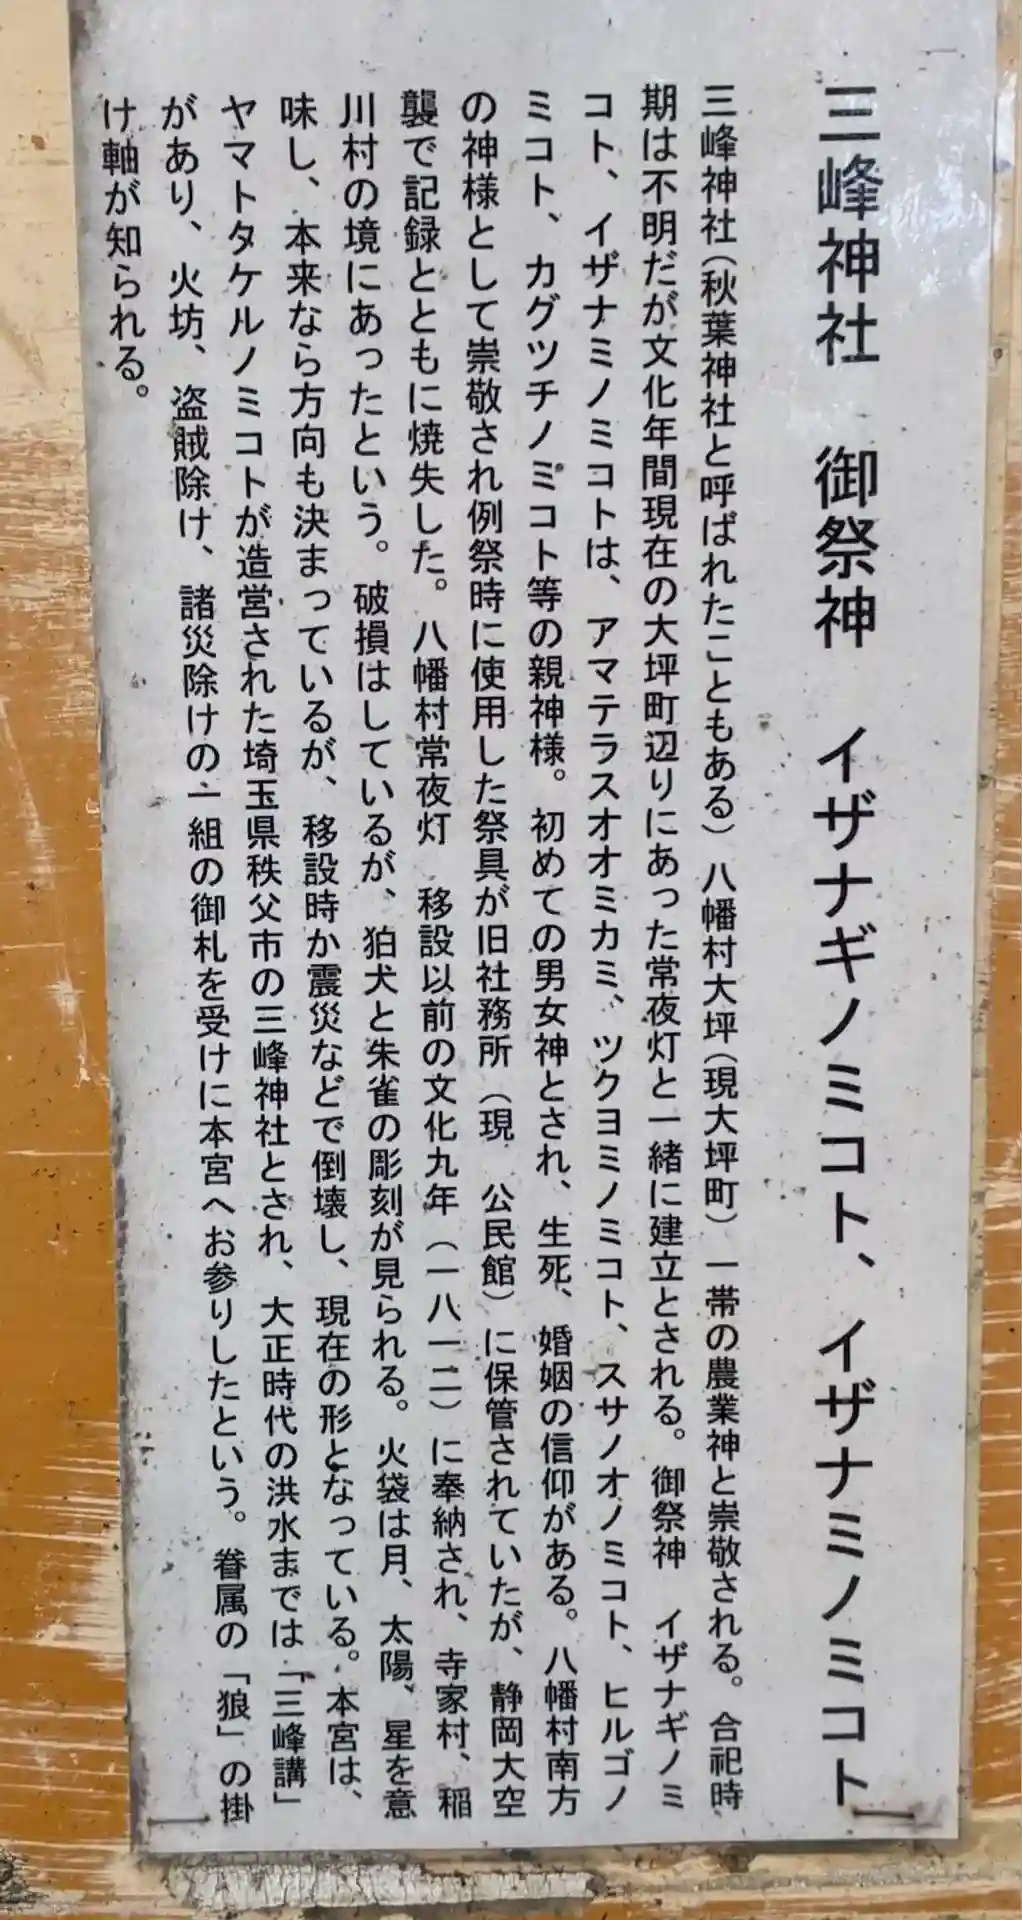 三峰神社　御祭神　イザナギノミコト、イザナミノミコト
三峰神社（秋葉神社と呼ばれたこともある）八幡村大坪（現大坪町）一帯の農業神と崇敬される。合祀時
期は不明だが文化年間現在の大坪町辺りにあった常夜灯と一緒に建立とされる。御祭神　イザナギノミ
コト、イザナミノミコトは、アマテラスオオミカミ、ツクヨミノミコト、スサノオノミコト、ヒルゴノ
ミコト、カグツチノミコト等の親神様。初めての男女神とされ、生死、婚姻の信仰がある。八幡村南方
の神様として崇敬され例祭時に使用した祭具が旧社務所（現　公民館）に保管されていたが、静岡大空
襲で記録とともに焼失した。八幡村常夜灯　移設以前の文化九年（一八一二）に奉納され、寺家村、稲
川村の境にあったという。破損はしているが、狛犬と朱雀の彫刻が見られる。火袋は月、太陽、星を意
味し、本来なら方向も決まっているが、移設時か震災などで倒壊し、現在の形となっている。本宮は、
ヤマトタケルノミコトが造営された埼玉県秩父市の三峰神社とされ、大正時代の洪水までは「三峰講」
があり、火坊、盗賊除け、諸災除けの一組の御札を受けに本宮へお参りしたという。眷属の「狼」の掛
け軸が知られる。